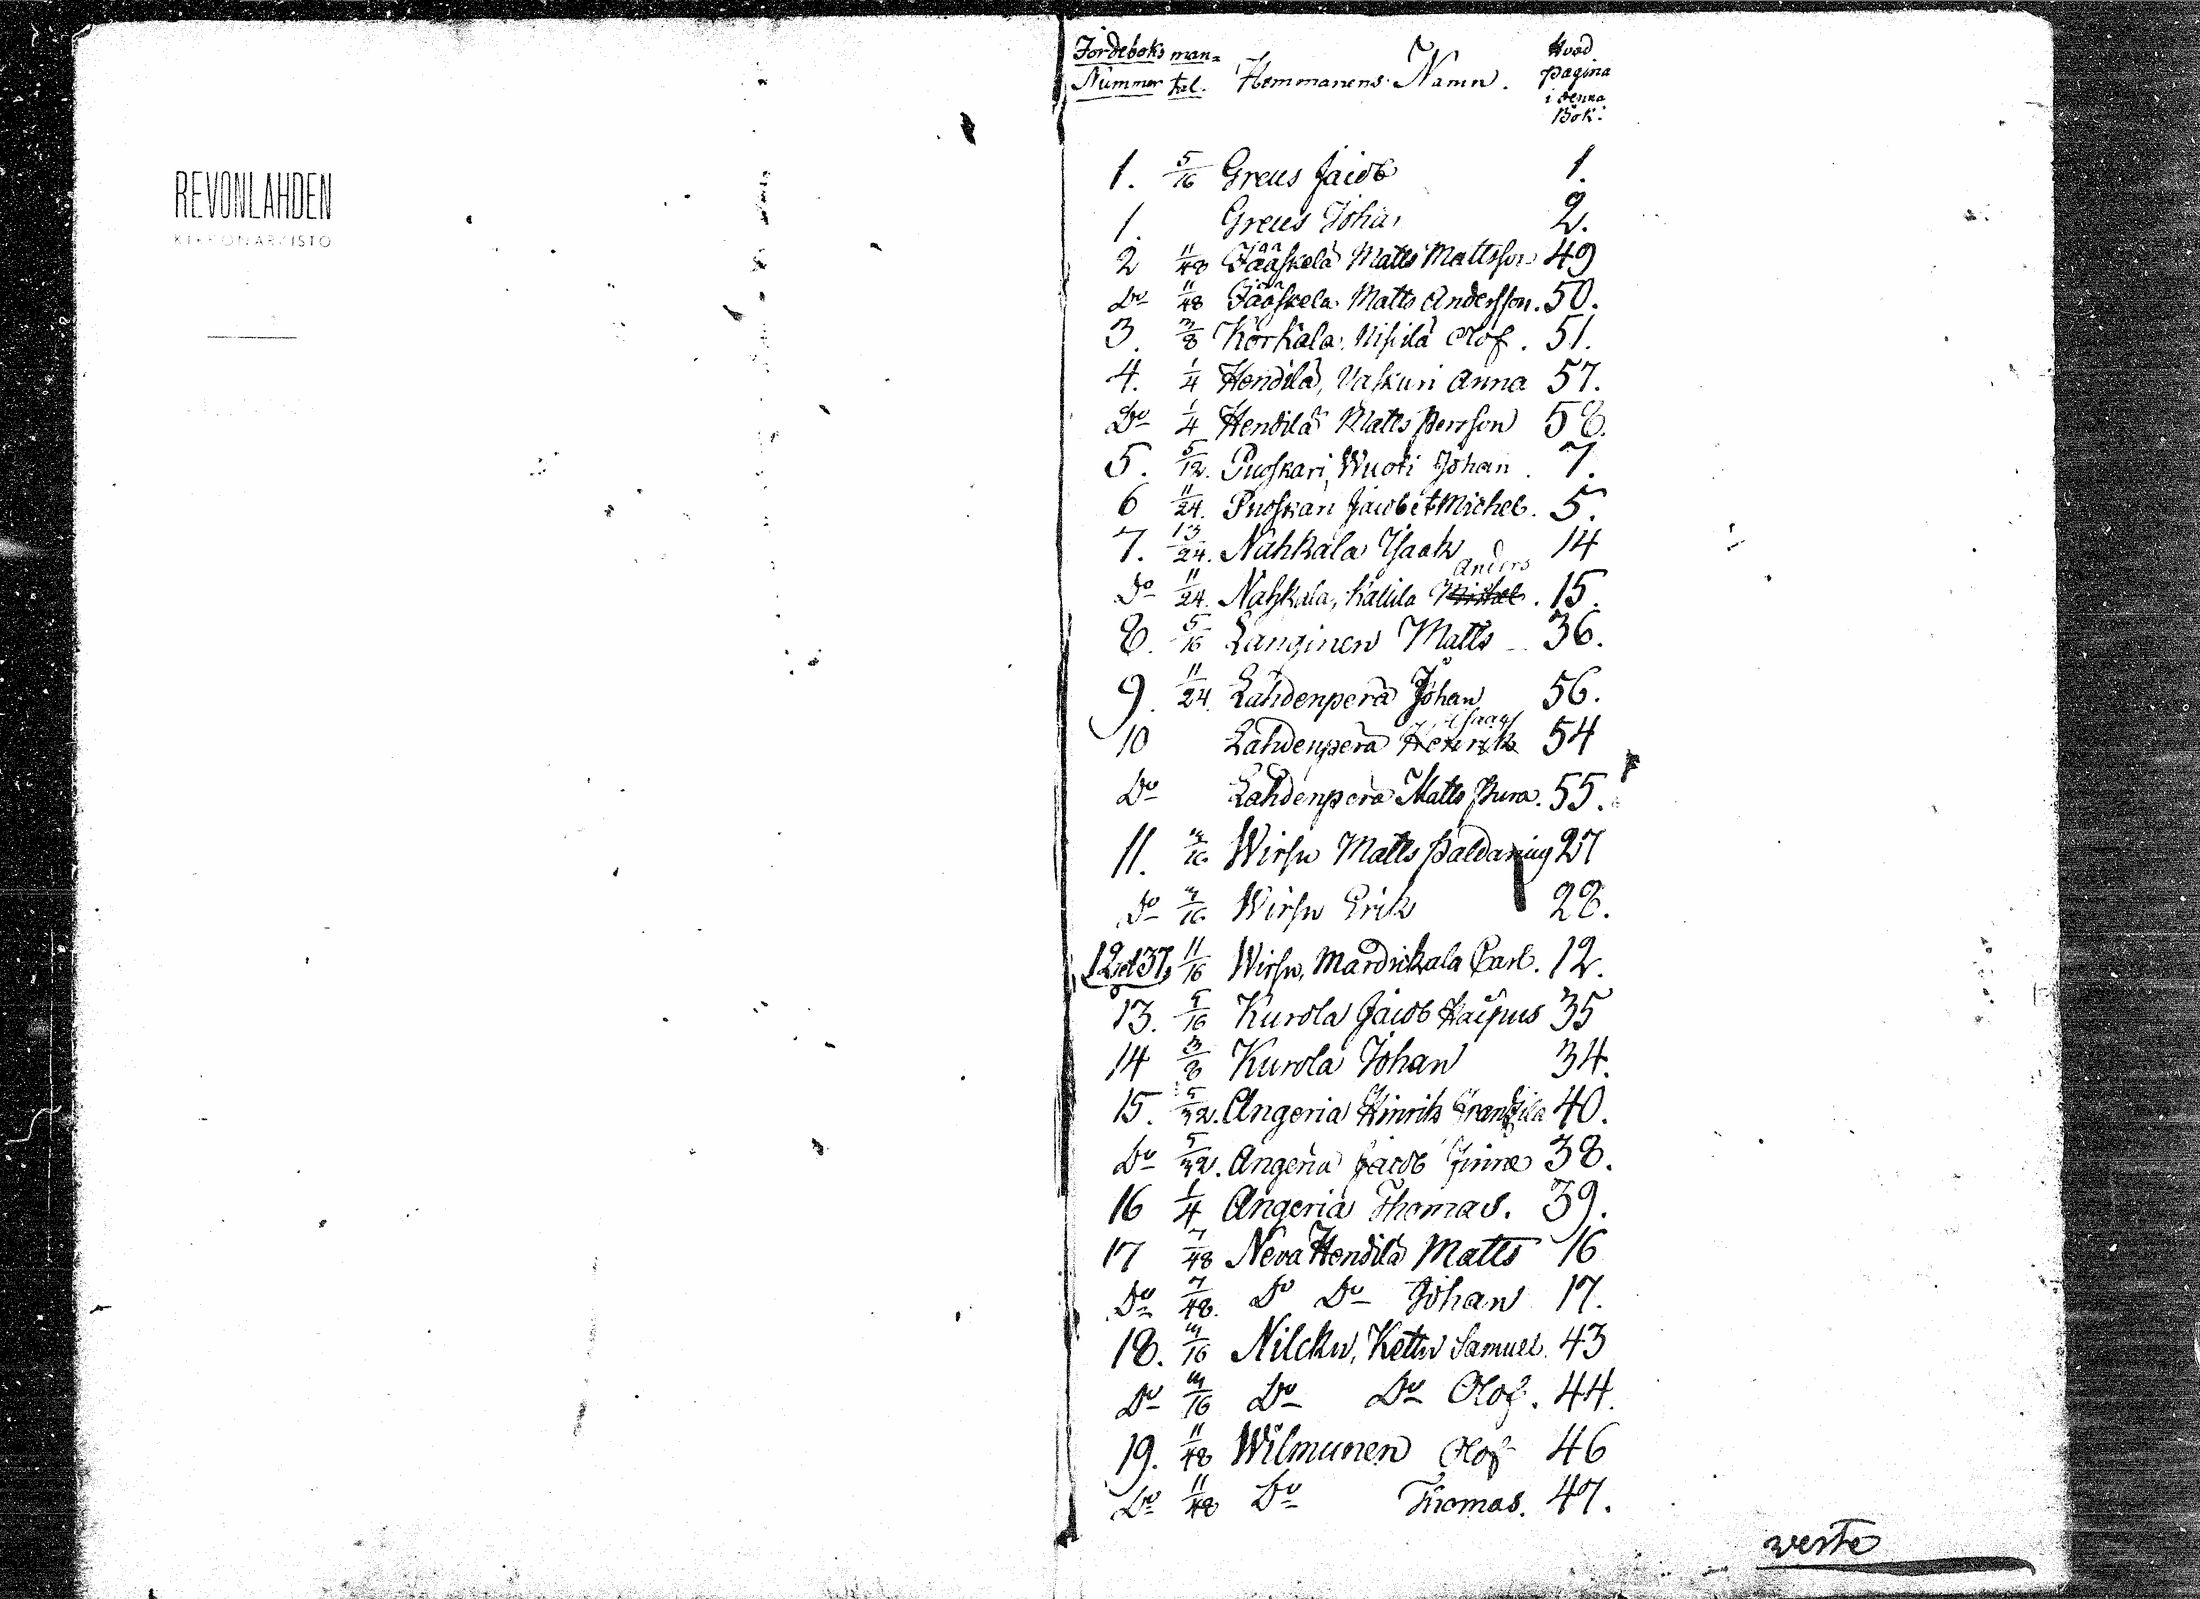 REVONLAHDEN
KIRKONARKISTO
Jordeboks man= Hvad
Nummer tal. Hemmanens Namn. pagina
i denna
Bok.
1. 5/16 Greus Jacob 1.
1. Greus Johan 2.
2 11/48 Jääskelä Matts Mattsson 49
Do 11/48 Jääskelä Matts Andersson. 50.
3. 3/8 Körkälä, Nisilä Olof. 51.
4. 1/4 Hendilä, Vaskuri Anna 57.
Do 1/4 Hendilä Matts Persson 58.
5. 5/12. Puoskari, Wuoti Johan. 7.
6 11/24. Puoskari Jacob et Michel. 5.
7. 13/24. Nahkala Isaak 14
Anders
Do 11/24. Nahkala, Kallila Michel. 15.
8. 5/16 Langinen Matts 36.
9. 11/24. Lahdenperä Johan 56.
Isaac
10 Lahdenperä Henrik 54
Do Lahdenperä Matts Pura. 55.
11. 3/16 Wirsu Matts Paldanius 27
Do 3/16 Wirsu Erik 28.
12 et 37, 11/16 Wirsu, Mardikala Carl. 12.
13. 5/16 Kurola Jacob 35
14 3/8 Kurola Johan 34.
15. 5/32. Angeria Hinrik Frantzila 40.
Do 5/32. Angeria Jacob 38.
16 1/4 Angeria Thomas. 39.
17 7/48 Neva Hendilä Matts 16
Do 7/48. Do Do Johan 17.
18. 3/16 Nilcku, Kettu Samuel. 43
Do 3/16 Do Do Olof. 44.
19. 11/48 Wilmunen Olof 46
Do 11/48 Do Thomas. 47.
verte